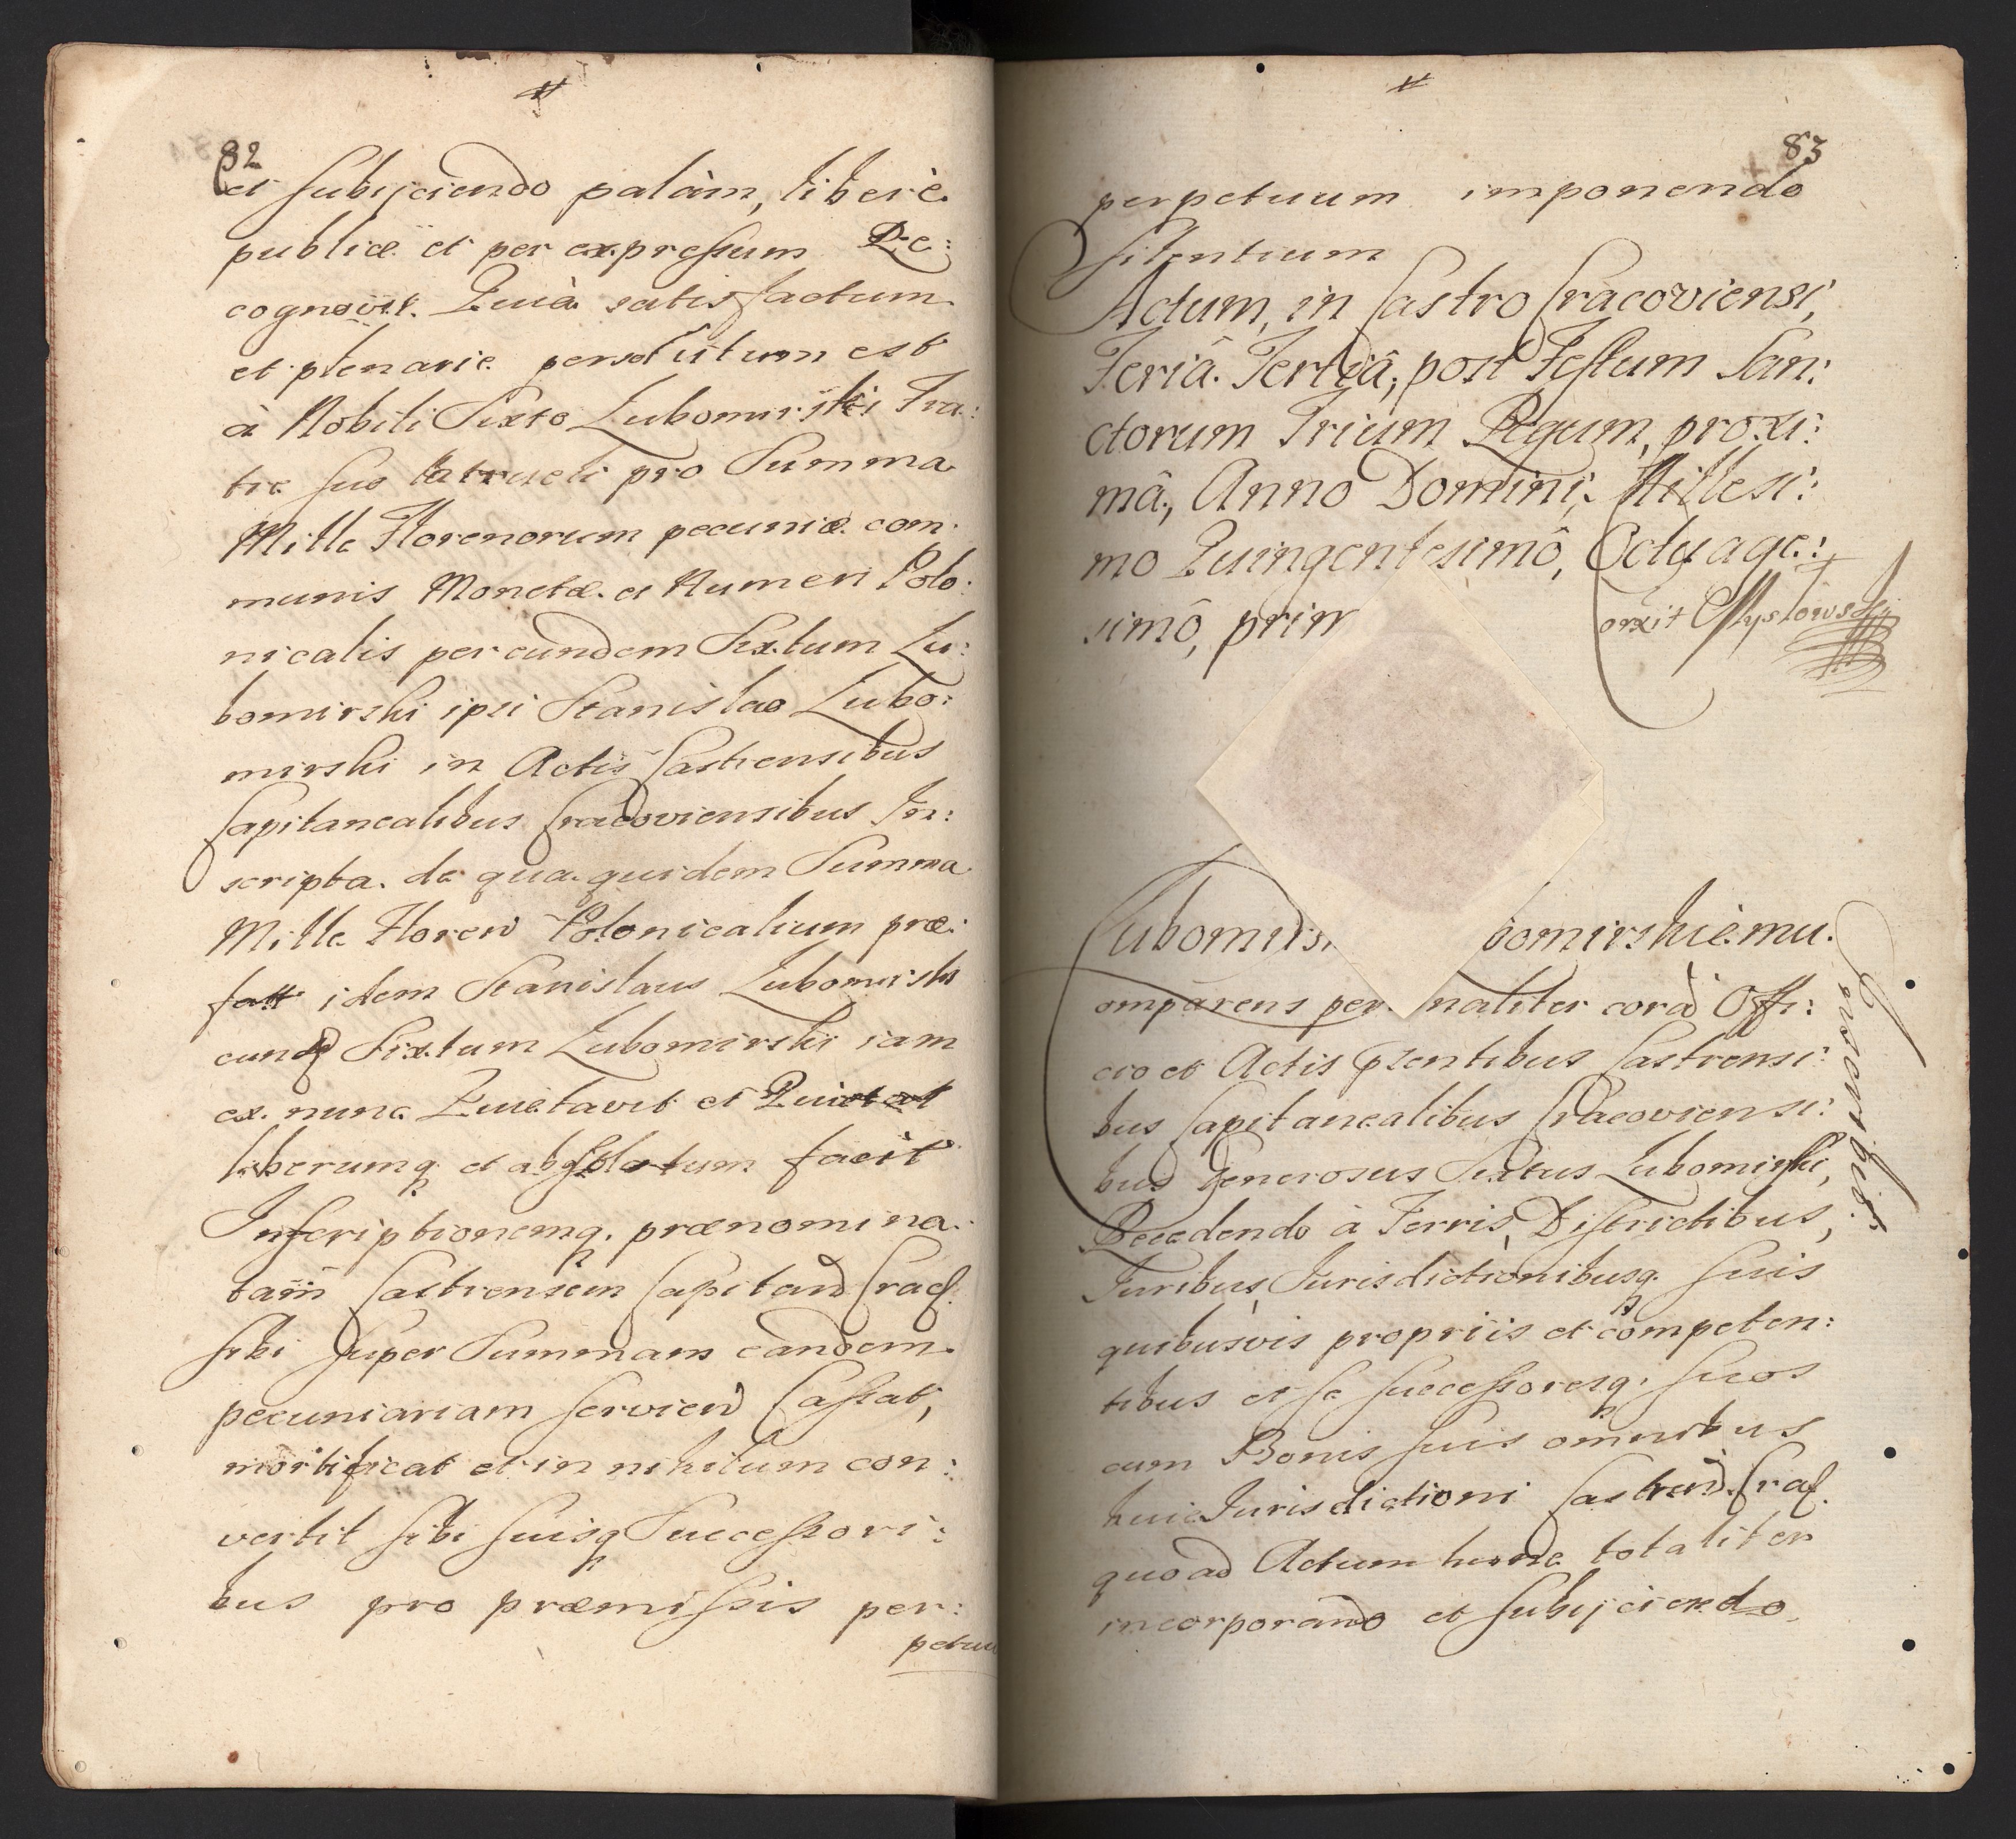 82
et subijciendo palàm, liberè
publicè et per expressum Re:
cognovit. Quia satisfactum
et plenarie persolutum est
à Nobili Sixto Lubomirski Fra:
tre suo Patrueli pro Summa
Mille Florenorum pecuniæ com:
munis Monetæ et Numeri Polo:
nicalis per eundem Sixtum Lu:
bomirski ipsi Stanislao Lubo:
mirski in Actis Castrensibus
Capitanealibus Cracoviensibus In:
scripta. de qua quidem Summa
Mille Floren Polonicalium præ:
fatt idem Stanislaus Lubomirski
eundq Sixtum Lubomirski iam
ex nunc Quietavit et Quietat
liberumq et absolutum facit
Inscriptionemq. prænomina:
tam Castrensem Capitan Crac.
sibi super Summam eandem
pecuniariam servien Cassat,
mortificat et in nihilum con:
vertit sibi suisq Successori:
bus pro præmissis per:
petuu
83
perpetuum imponendo
silentium
Actum, in Castro Cracoviensi,
Feriâ Tertiâ, post Festum San:
ctorum Trium Regum, proxi:
mâ, Anno Domini, Millesi:
mo Quingentesimô, Octuage:
simô, prim
Correxit Mysłowskj
Lubomirs bomirskiemu.
Comparens per naliter corã Offi:
cio et Actis pntibus Castrensi:
bus Capitanealibus Cracoviensi:
bus Generosus Sixtus Lubomirski,
Recedendo à Terris, Districtibus,
Iuribus, Iurisdictionibusq. suis
quibusvis propriis et competen:
tibus et se successoresq. suos
cum Bonis suis omnibus
huic Iurisdictioni Castren. Crac.
quoad Actum hunc totaliter
incorporando et subijciendo